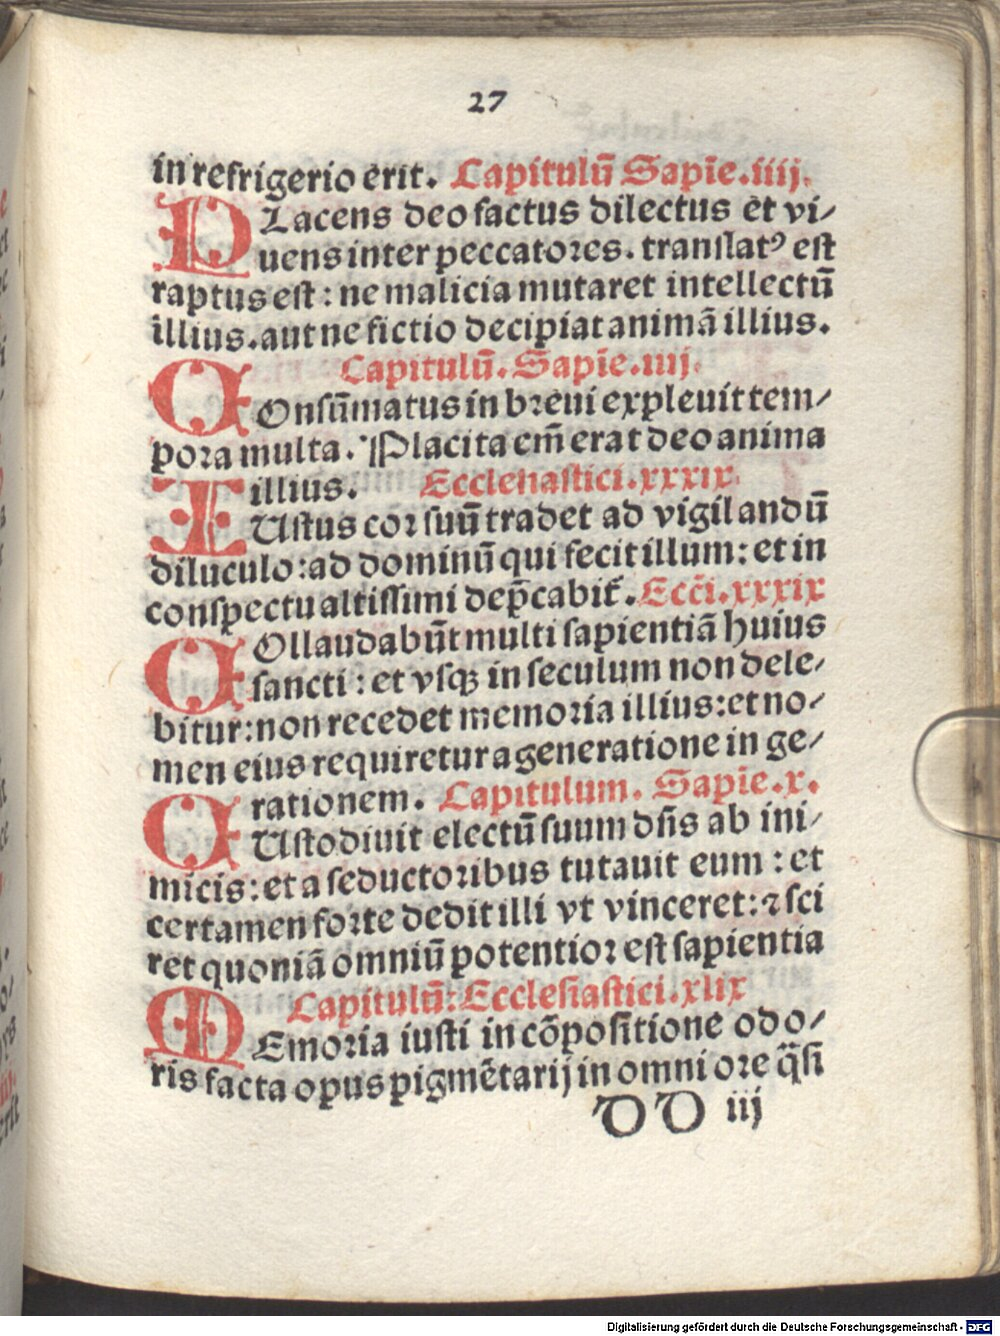 27
in refrigerio erit. Capitulū Sapīe.iiij.
PLacens deo factus dilectus et vi⸗
uens inter peccatores. translatꝰ est
raptus est : ne malicia mutaret intellectū
illius. aut ne fictio decipiat animā illius.
Capitulū. Sapīe.iiij.
COnsūmatus in breui expleuit tem⸗
pora multa. Placita em̄ erat deo anima
illius. Ecclesiastici.xxxix.
IUstus cor suū tradet ad vigilandū
diluculo: ad dominū qui fecit illum: et in
conspectu altissimi dep̄cabit᷑. Ecc̄i.xxxix
COllaudabūt multi sapientiā huius
sancti : et vsqꝫ in seculum non dele⸗
bitur: non recedet memoria illius: et no⸗
men eius requiretur a generatione in ge⸗
rationem. Capitulum. Sapīe.x.
CUstodiuit electū suum dn̄s ab ini⸗
micis: et a seductoribus tutauit eum : et
certamen forte dedit illi vt vinceret: ⁊ sci
ret quoniā omniū potentior est sapientia
Capitulū: Ecclesiastici.xlix
MEmoria iusti in cōpositione odo⸗
ris facta opus pigmētarij in omni ore q̄si
DD iij
Digitalisierung gefördert durch die Deutsche Forschungsgemeinschaft - DFG